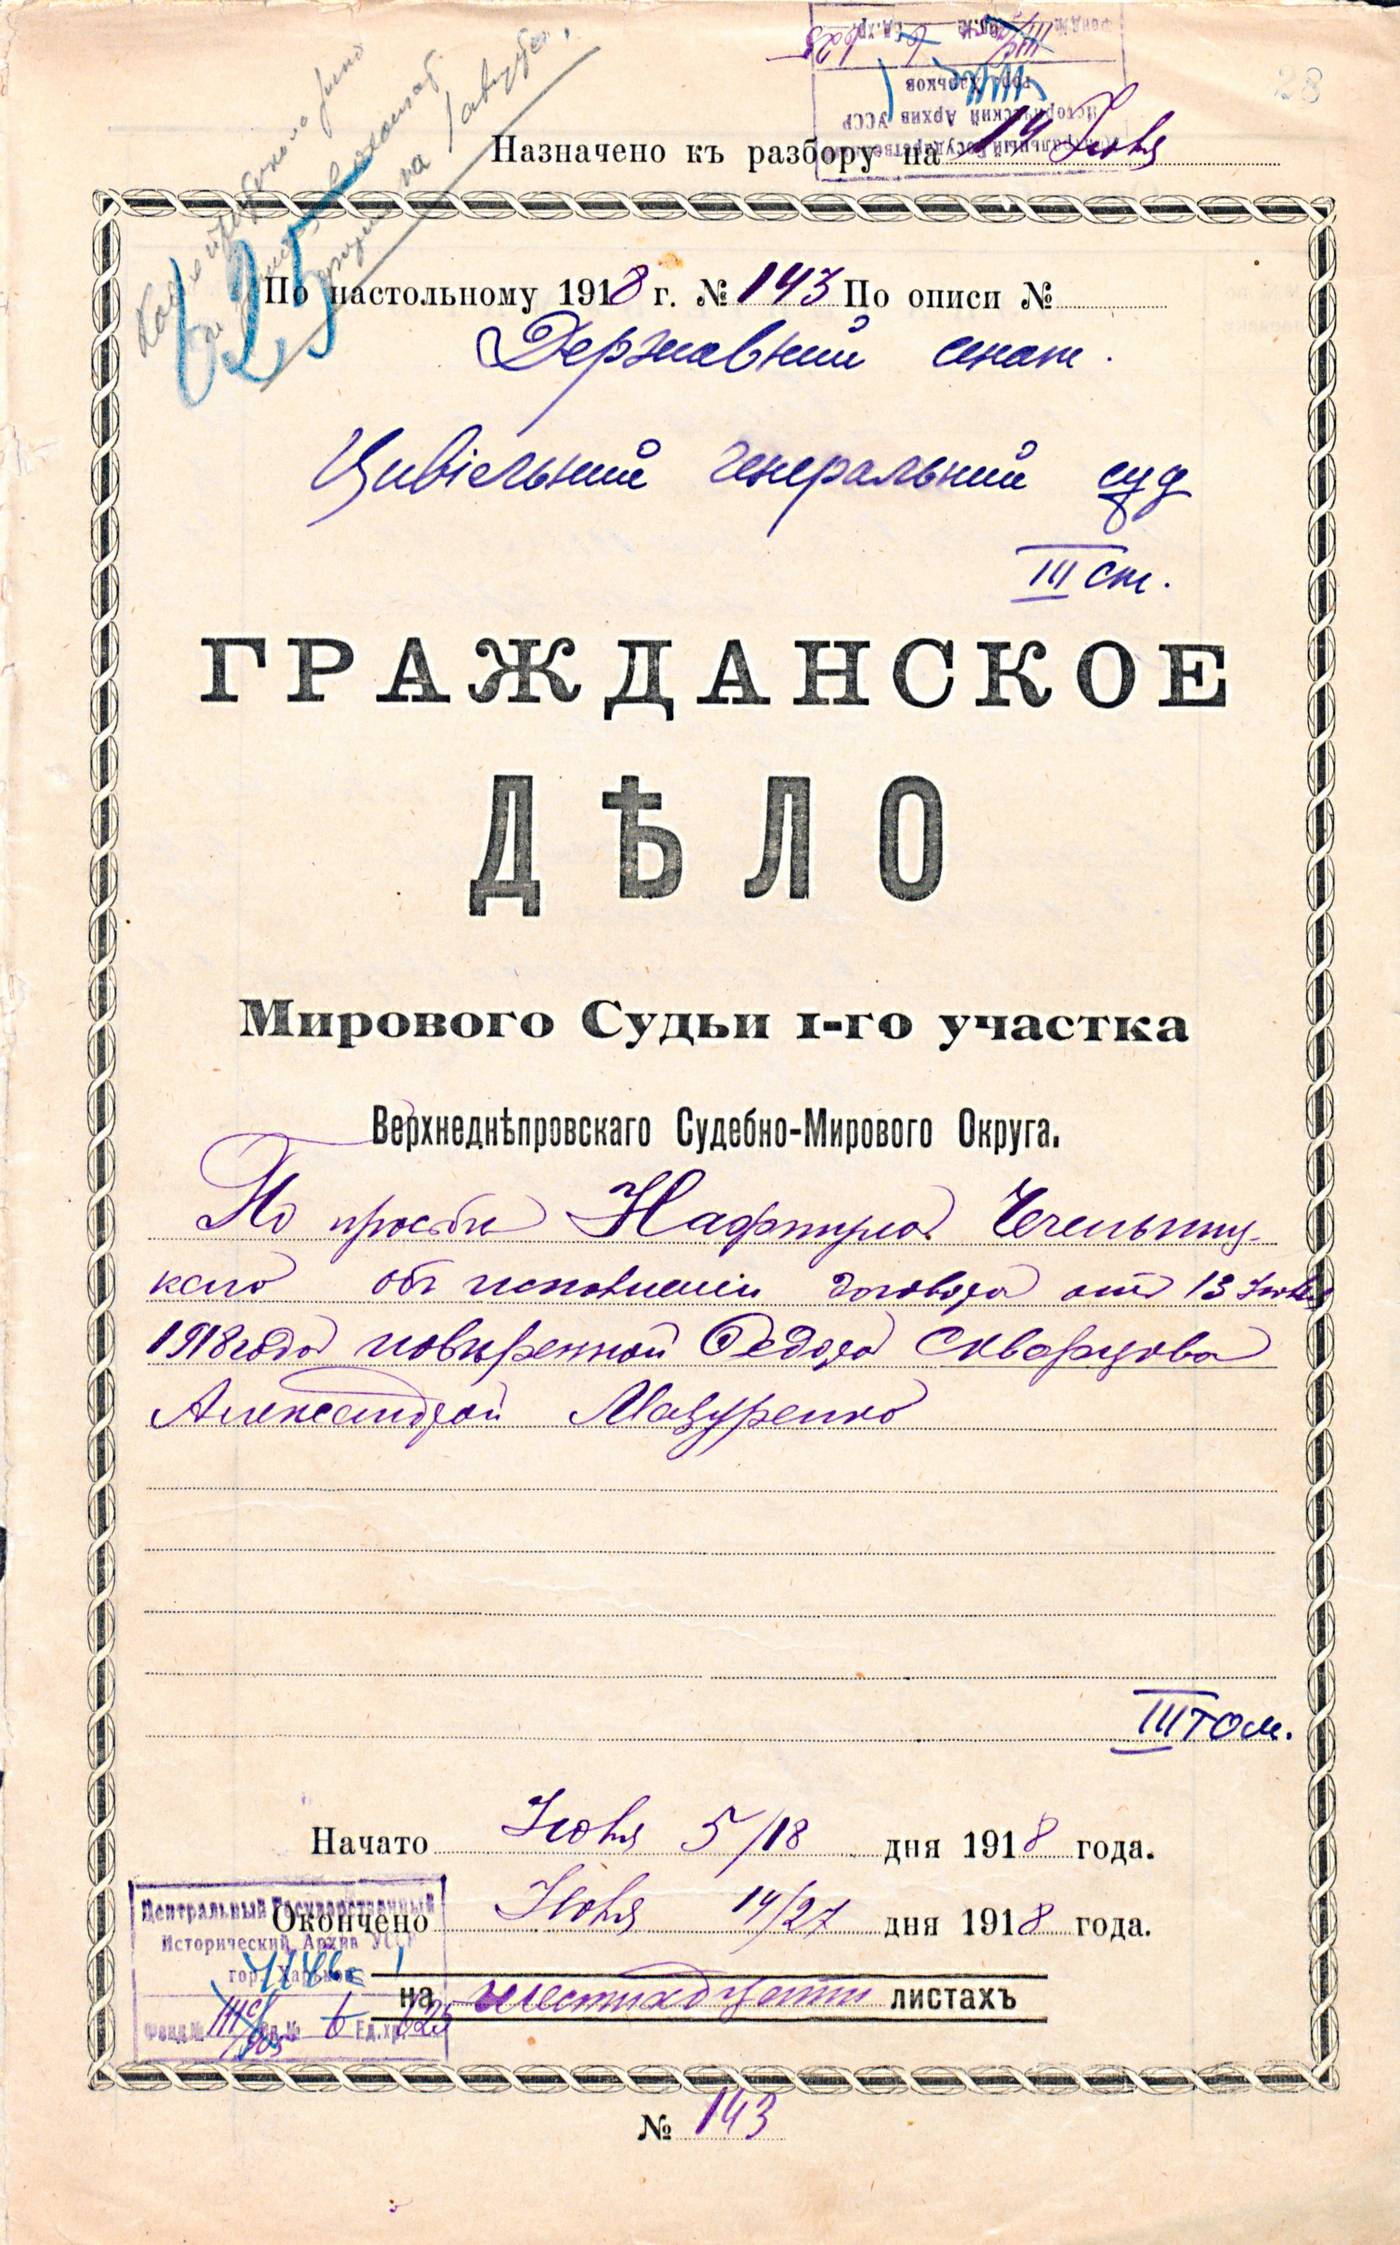 28
Центральный Государственный
Исторический Архив УССР
гор. Харьков
Фонд №
Назначено къ разбору на 14 Іюня
625
По настольному 1918 г. № 143 По описи №
Державний сенат.
Цивільний генеральний суд
III ст.
ГРАЖДАНСКОЕ
ДѢЛО
Мирового Судьи 1-го участка
Верхнеднѣпровскаго Судебно-Мирового Округа.
По просьбѣ Нафтула Чечельниц-
каго объ исполненіи договора отъ 13 Іюня
1918 года повѣренной Федора Скворцова
Александрой Мазуренко
III том.
Начато Іюня 5/18 дня 1918 года.
Окончено Іюня 14/27 дня 1918 года.
Центральный Государственный
Исторический Архив УССР
гор. Харьков
на шестнадцати листахъ
Фонд № Оп. № 6 Ед. хр. 625
№ 143